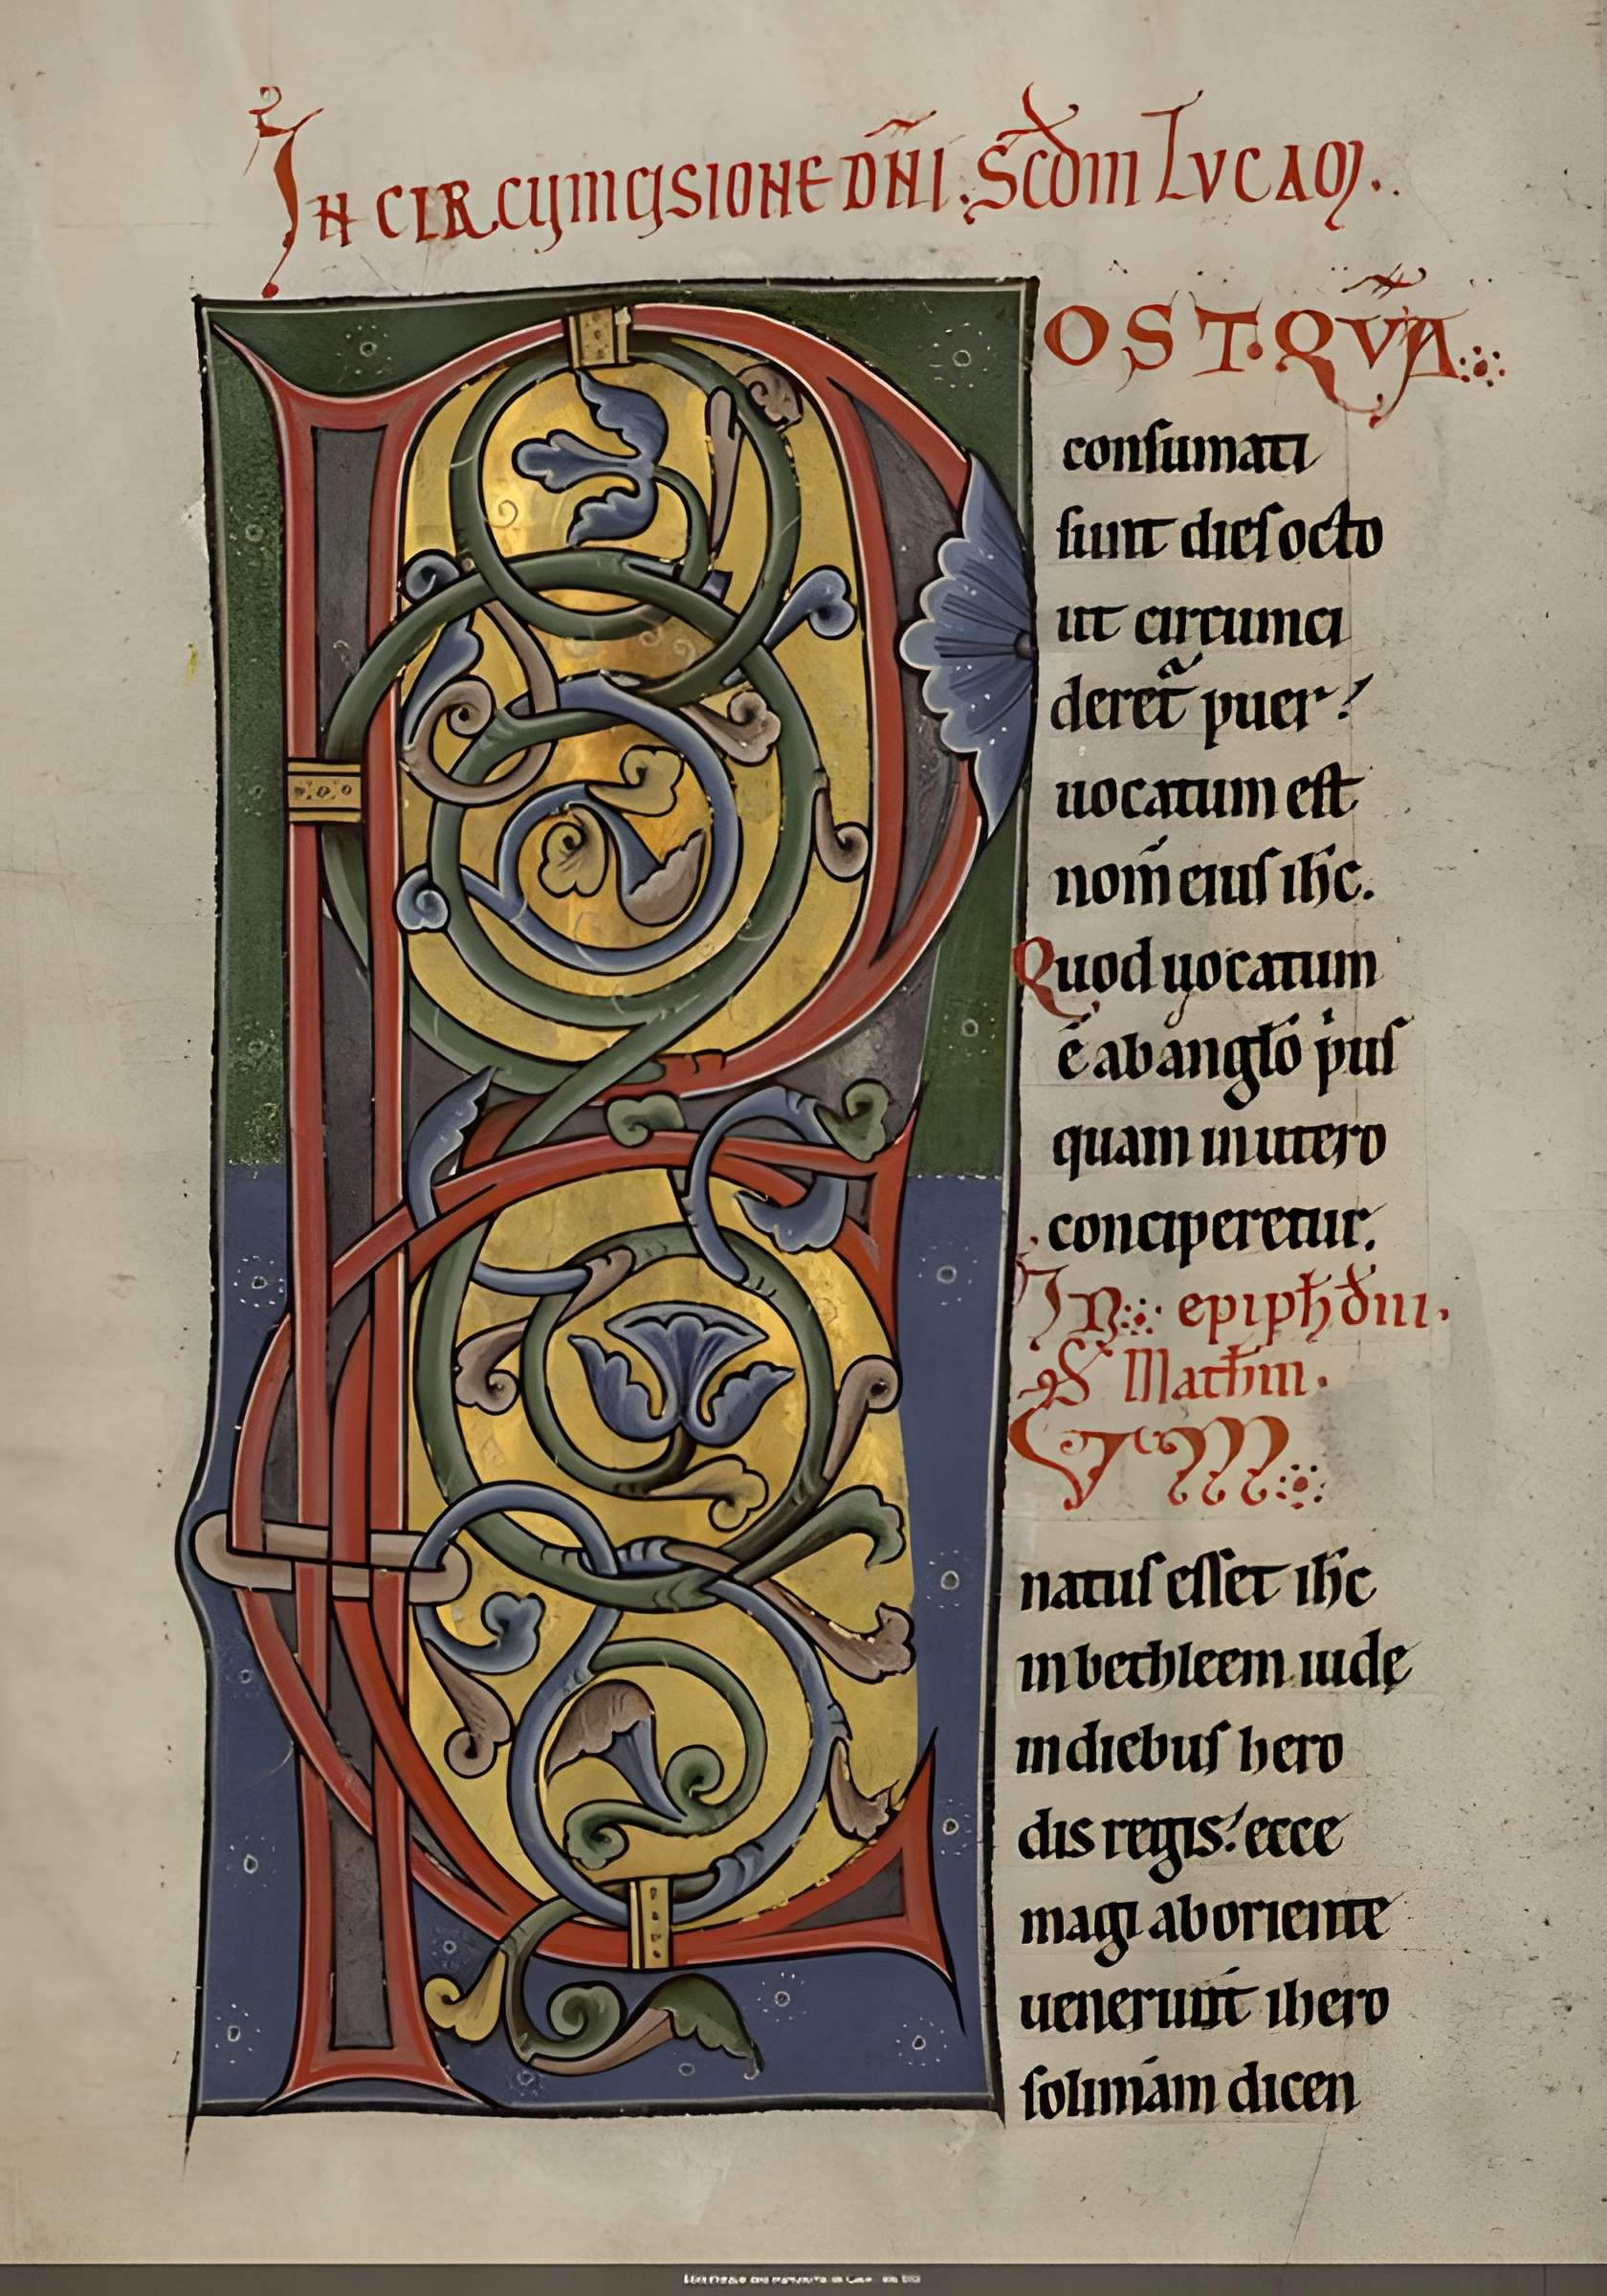 In circumcisione dñi. Scdm Lucam.
OSTQVÃ
consumati
sunt dies octo
ut circumci
deret᷑ puer
uocatum est
nom̄ eius ih̄c.
Quod uocatum
ē ab anglo p̍us
quam in utero
conciperetur.
In epiph̄ dn̄i.
S Math̄m.
CVM
natus esset ih̄c
in bethleem iudę
in diebus hero
dis regis ecce
magi ab oriente
uenerunt ihero
solimam dicen